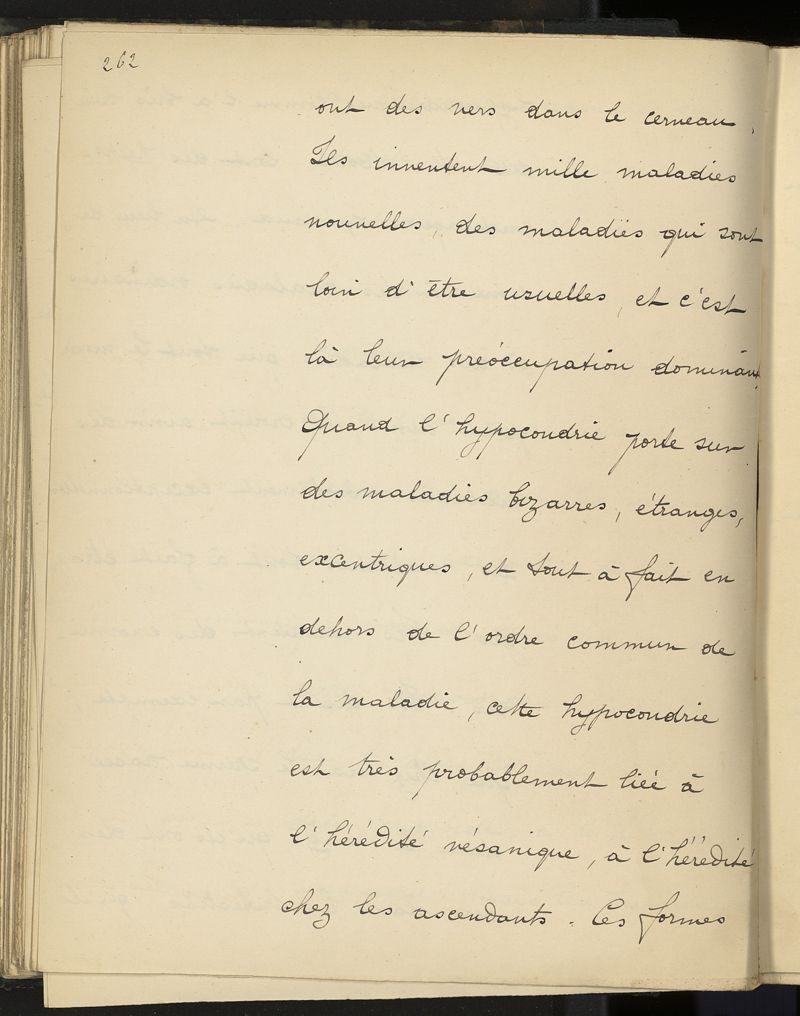 262
ont des vers dans le cerveau.
Ils inventent mille maladies
nouvelles, des maladies qui sont
loin d'être usuelles, et c'est
là leur préoccupation dominan
Quand l'hypocondrie porte sur
des maladies bizarres, étranges,
excentriques, et tout à fait en
dehors de l'ordre commun de
la maladie, cette hypocondrie
est très probablement liée à
l'hérédité vésanique, à l'hérédité
chez les ascendants. Ces formes